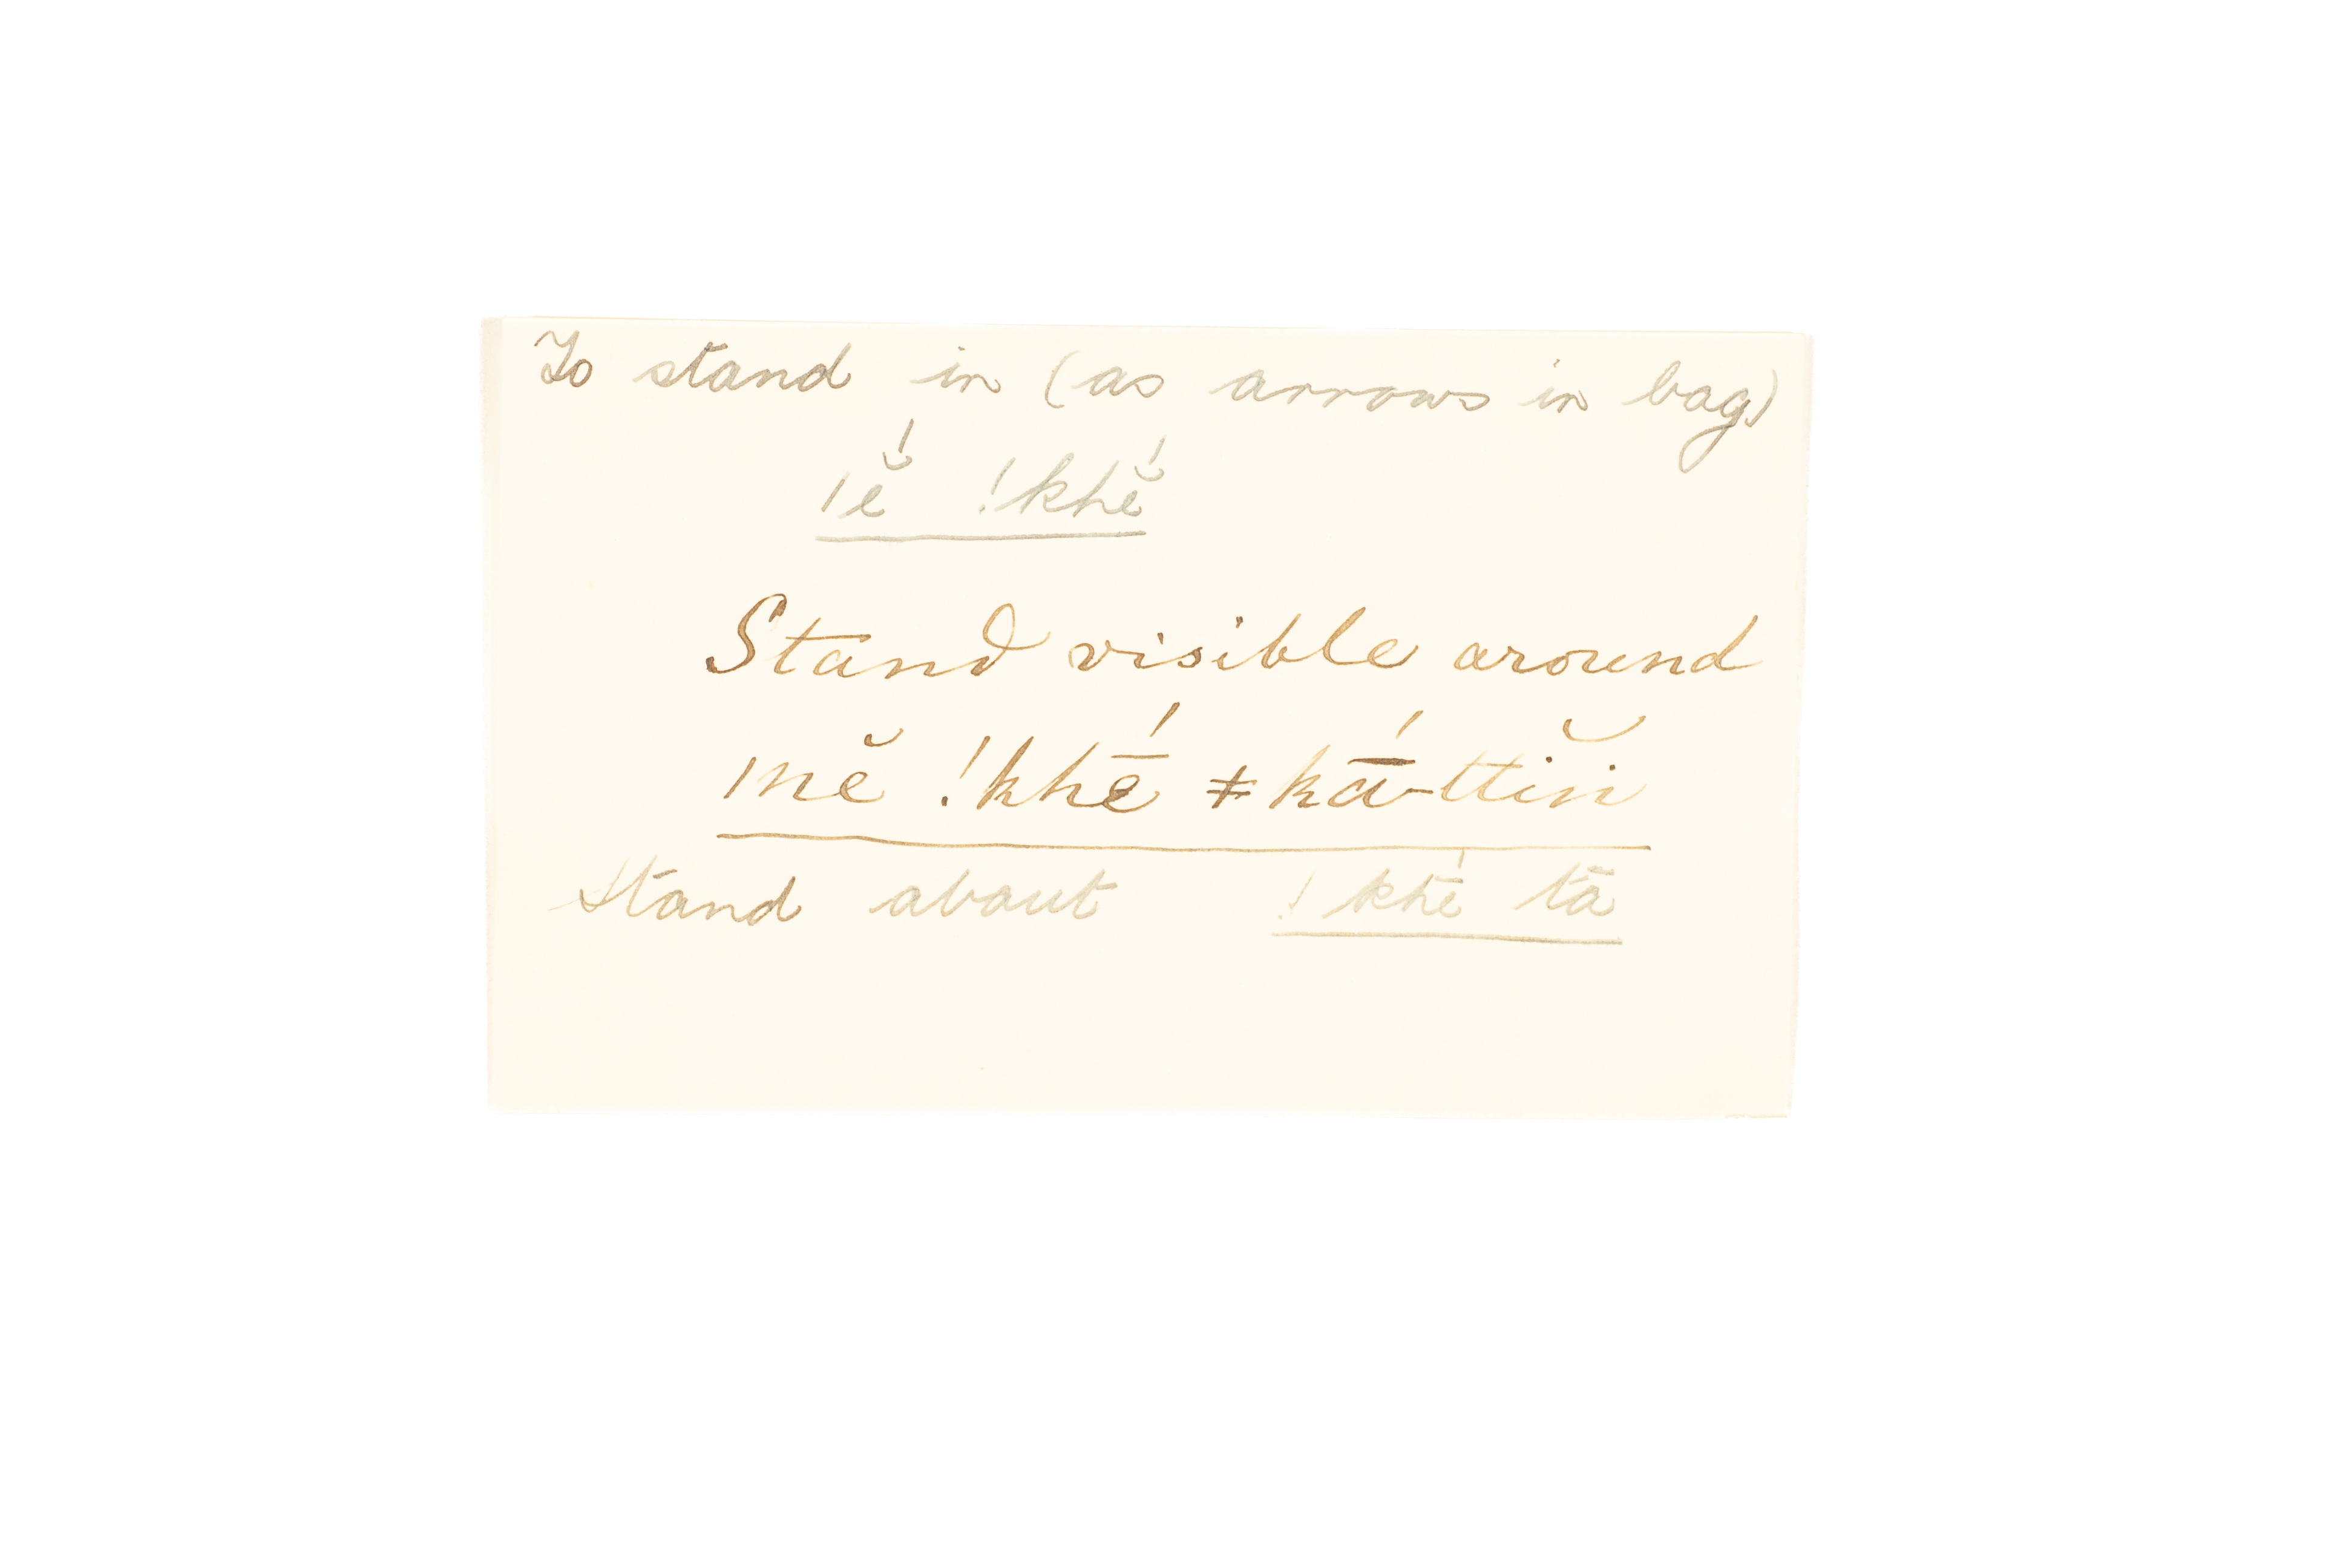 To stand in (as arrows in bag)
ǀĕ́ !khĕ́
Stand visible around
ǀnĕ !khḗ ǂkā́-ttĭn
Stand about !khḗ tā